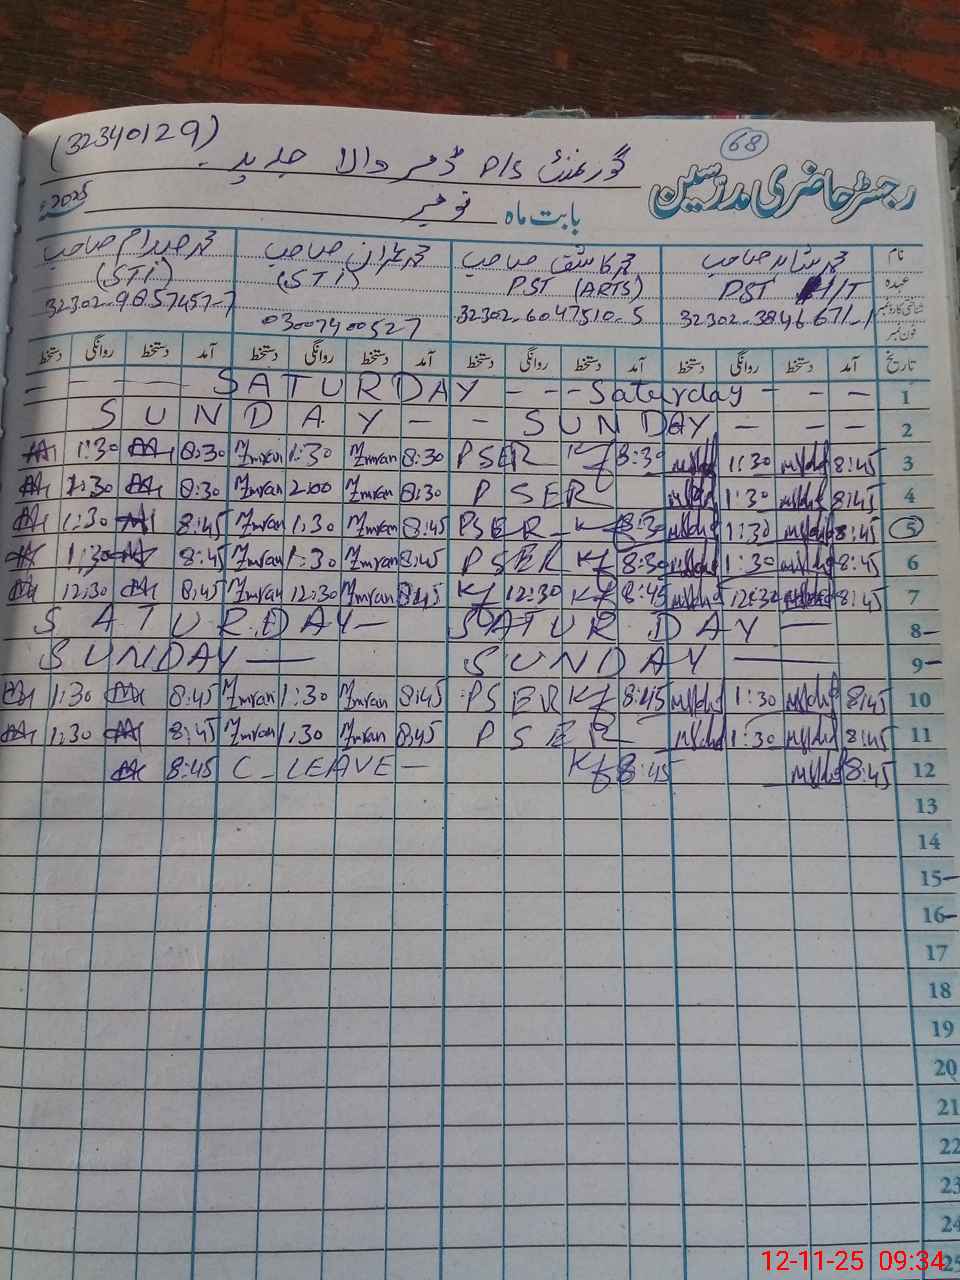 (32340129)
68
گورنمنٹ P/S ڈمر والا جدید
رجسٹر حاضری مدرسین
بابت ماہ نومبر 2025
نام محمد شاہد صاحب محمد کاشف صاحب محمد عمران صاحب صاحب
عہدہ PST PST (ARTS) (STI) (STI)
شناختی کارڈ نمبر 32302-3846671-1 32302-6047510-5 32302-9857457-7
فون نمبر 03007400527
تاریخ آمد دستخط روانگی دستخط آمد دستخط روانگی دستخط آمد دستخط روانگی دستخط آمد دستخط روانگی دستخط
— — — — SATURDAY — — — Saturday — — — 1
SUNDAY — — SUNDAY — — — 2
1:30 8:30 Imran 1:30 Imran 8:30 PSER 8:30 1:30 8:45 3
1:30 8:30 Imran 2:00 Imran 8:30 PSER 1:30 8:45 4
1:30 8:45 Imran 1:30 Imran 8:45 PSER 8:30 1:30 8:45 5
1:30 8:45 Imran 1:30 Imran 8:45 PSER 8:30 1:30 8:45 6
12:30 8:45 Imran 12:30 Imran 8:45 12:30 8:45 12:30 8:45 7
SATURDAY — SATURDAY — 8
SUNDAY — SUNDAY — 9
1:30 8:45 Imran 1:30 Imran 8:45 PSER 8:45 1:30 8:45 10
1:30 8:45 Imran 1:30 Imran 8:45 PSER 1:30 8:45 11
8:45 C_ LEAVE — 8:45 8:45 12
13
14
15
16
17
18
19
20
21
22
23
24
25
12-11-25 09:34